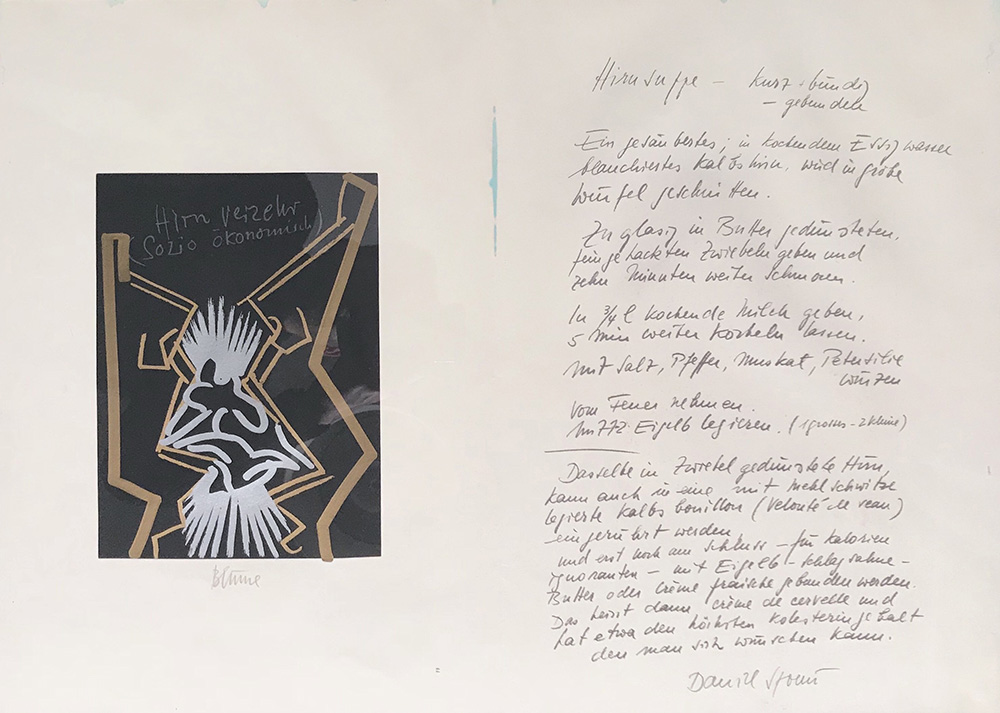 Hirn verzehr
(Sozio ökonomisch)
Blume
Hirnsuppe – kurz + bündig
– gebunden
Ein gesäubertes, in kochendem Essigwasser
blanchiertes Kalbshirn, wird in grobe
Würfel geschnitten.
Zu glasig in Butter gedünsteten,
feingehackten Zwiebeln geben und
zehn Minuten weiter schmoren.
In 3/4 l kochende Milch geben,
5 min weiter köcheln lassen.
mit Salz, Pfeffer, Muskat, Petersilie
würzen
Vom Feuer nehmen.
mit Eigelb legieren. (1 grosses – 2 kleine)
Dasselbe in Zwiebel gedünstete Hirn,
kann auch in eine mit Mehlschwitze
legierte Kalbsbouillon (Velouté de veau)
eingerührt werden
und erst noch am Schluss – für Kalorien
ignoranten – mit Eigelb – Schlagsahne –
Butter oder Crème fraîche gebunden werden.
Das heisst dann crème de cervelle und
hat etwa den höchsten Kolesteringehalt
den man sich wünschen kann.
Daniel Spoerri